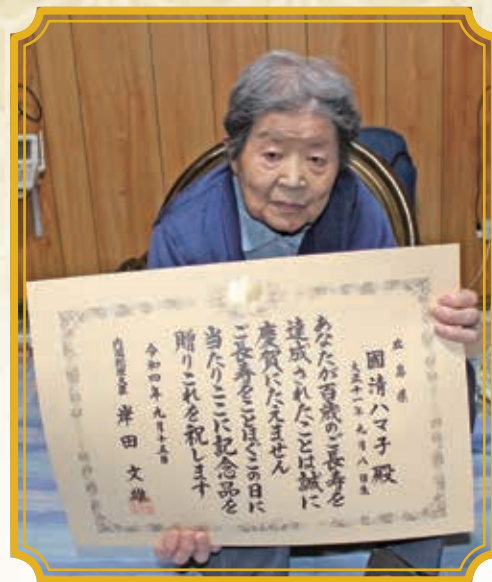 広島県
國清ハマ子殿
大正十一年九月八日生
あなたが百歳のご長寿を
達成されたことは誠に
慶賀にたえません
ご長寿をことほぐこの日に
当たりここに記念品を
贈りこれを祝します
令和四年九月十五日
内閣総理大臣 岸田文雄